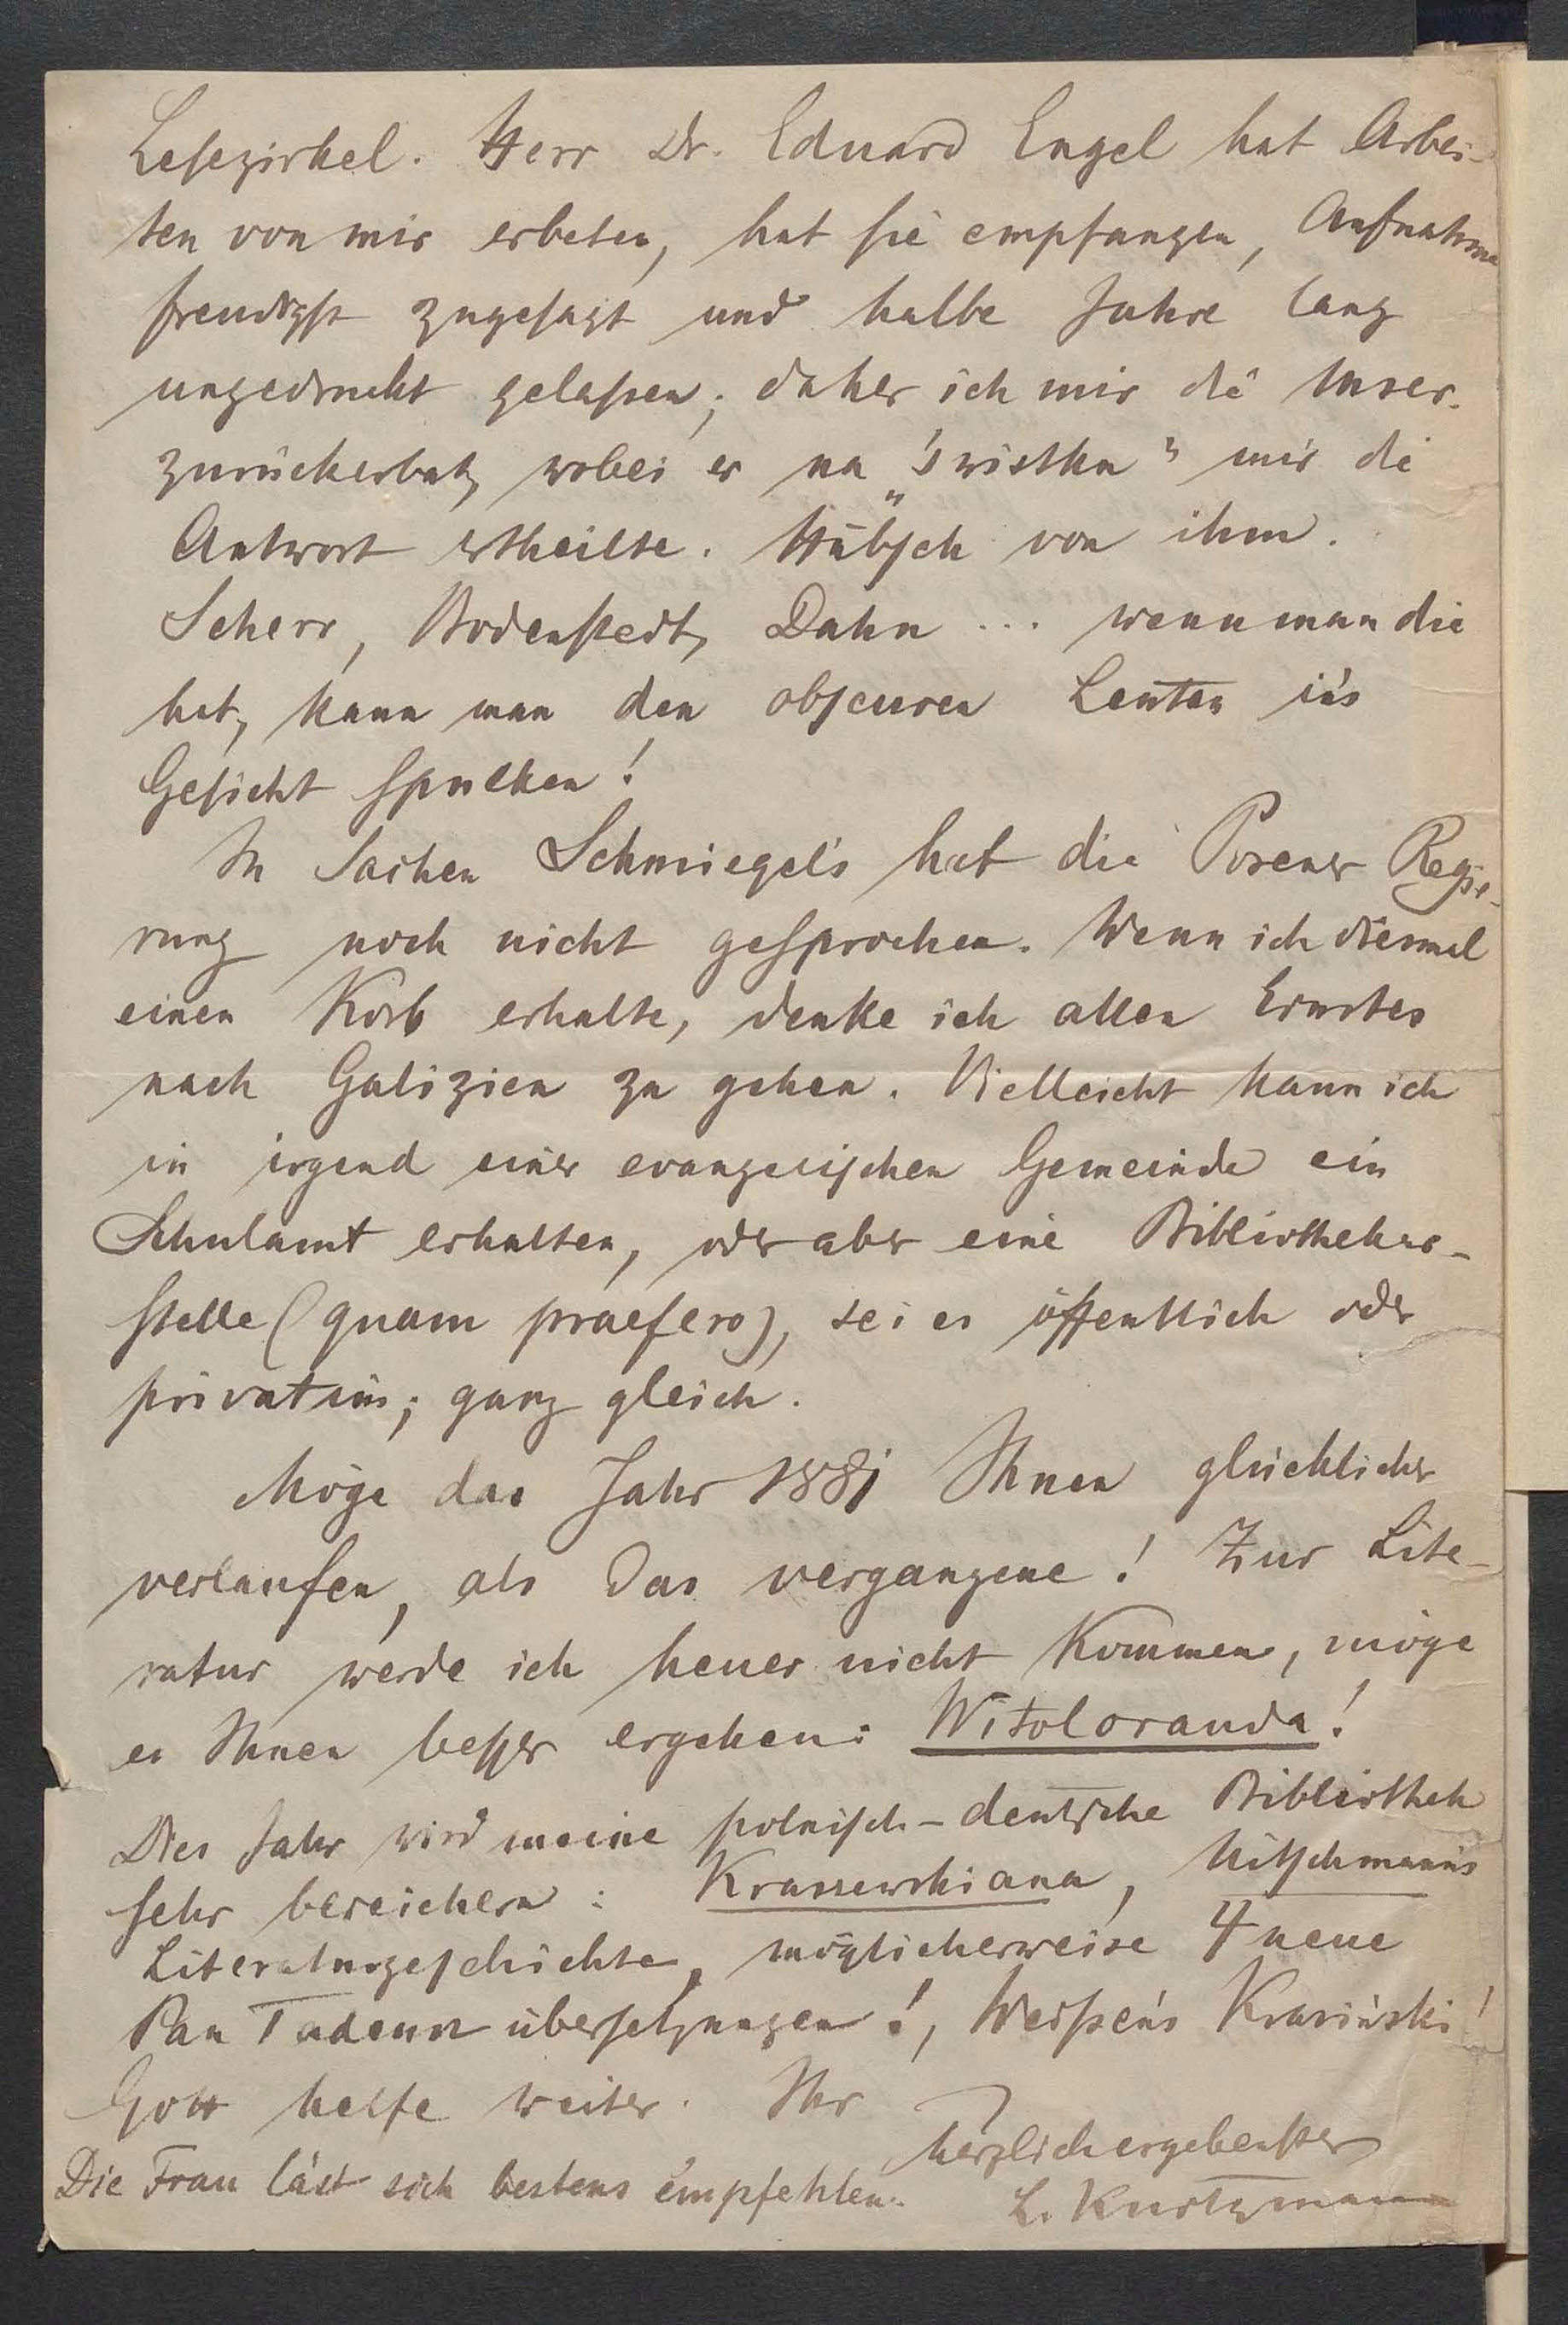 Lesezirkel. Herr Dr. Eduard Engel hat Arbei-
ten von mir erbeten, hat sie empfangen, Aufnahme
freudigst zugesagt und halbe Jahre lang
ungedruckt gelassen; daher ich mir die Mnscr.
zurückerbat, wobei er na „świstku" mir die
Antwort ertheilte. Hübsch von ihm.
Scherr, Bodenstedt, Dahn ... wenn man die
hat, kann man den obscuren Leuten in's
Gesicht spucken!
In Sachen Schmiegel's hat die Posener Regie-
rung noch nicht gesprochen. Wenn ich diesmal
einen Korb erhalte, denke ich allen Ernstes
nach Galizien zu gehen. Vielleicht kann ich
in irgend einer evangelischen Gemeinde ein
Schulamt erhalten, oder aber eine Bibliothekar-
stelle (quam praefero), sei es öffentlich oder
privatim; ganz gleich.
Möge das Jahr 1881 Ihnen glücklicher
verlaufen, als das vergangene! Zur Lite-
ratur werde ich heuer nicht kommen, möge
es Ihnen besser ergehen: Witoloranda!
Dies Jahr wird meine polnisch-deutsche Bibliothek
sehr bereichern: Kraszewskiana, Nitschmann's
Literaturgeschichte, möglicherweise 4 neue
Pan Tadeusz übersetzungen!, Weissen's Krasiński!
Gott helfe weiter. Ihr
herzlich ergebenster
Die Frau läst sich bestens empfehlen.
L. Kurtzmann